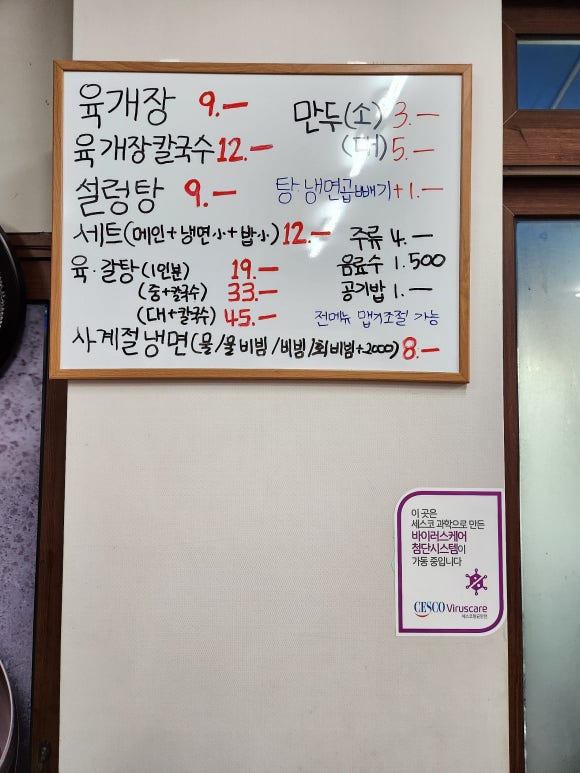 육개장 9.—
육개장칼국수 12.—
설렁탕 9.—
세트(메인+냉면小+밥小) 12.—
육·갈탕(1인분) 19.—
(중+칼국수) 33.—
(대+칼국수) 45.—
사계절냉면(물/물비빔/비빔/회비빔+2000) 8.—
만두(소) 3.—
(대) 5.—
탕·냉면곱빼기+1.—
주류 4.—
음료수 1.500
공기밥 1.—
전메뉴 맵기조절 가능
이 곳은
세스코 과학으로 만든
바이러스케어
첨단시스템이
가동 중입니다
CESCO Viruscare